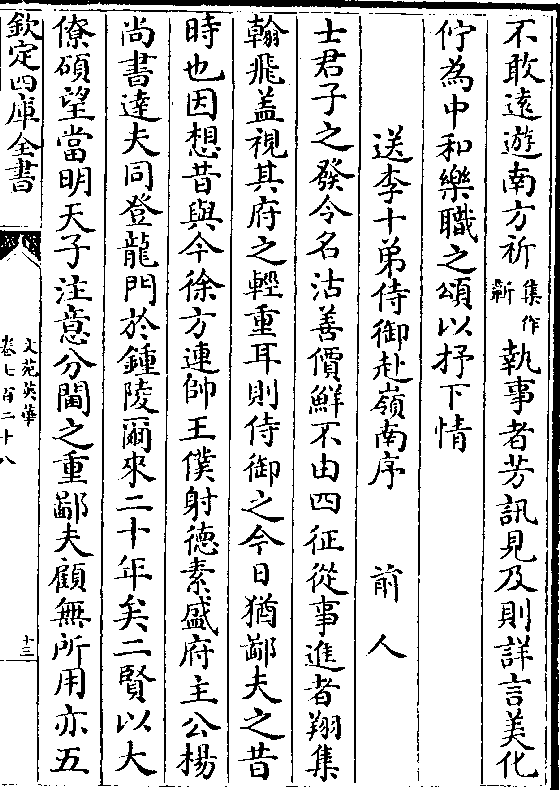 不敢遠遊南方祈集作新執事者芳訊見及則詳言美化
佇為中和樂職之頌以抒下情
送李十弟侍御赴嶺南序 前人
士君子之發令名沽善價鮮不由四征從事進者翔集
翰飛盖視其府之輕重耳則侍御之今日猶鄙夫之昔
時也因想昔與今徐方連帥王僕射德素盛府主公楊
尚書達夫同登龍門於鍾陵爾來二十年矣二賢以大
僚碩望當明天子注意分閫之重鄙夫顧無所用亦五
欽定四庫全書
文苑英華
卷七百二十八
十三